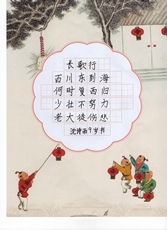 长歌行
百川东到海
何时复西归
少壮不努力
老大徒伤悲
岁书